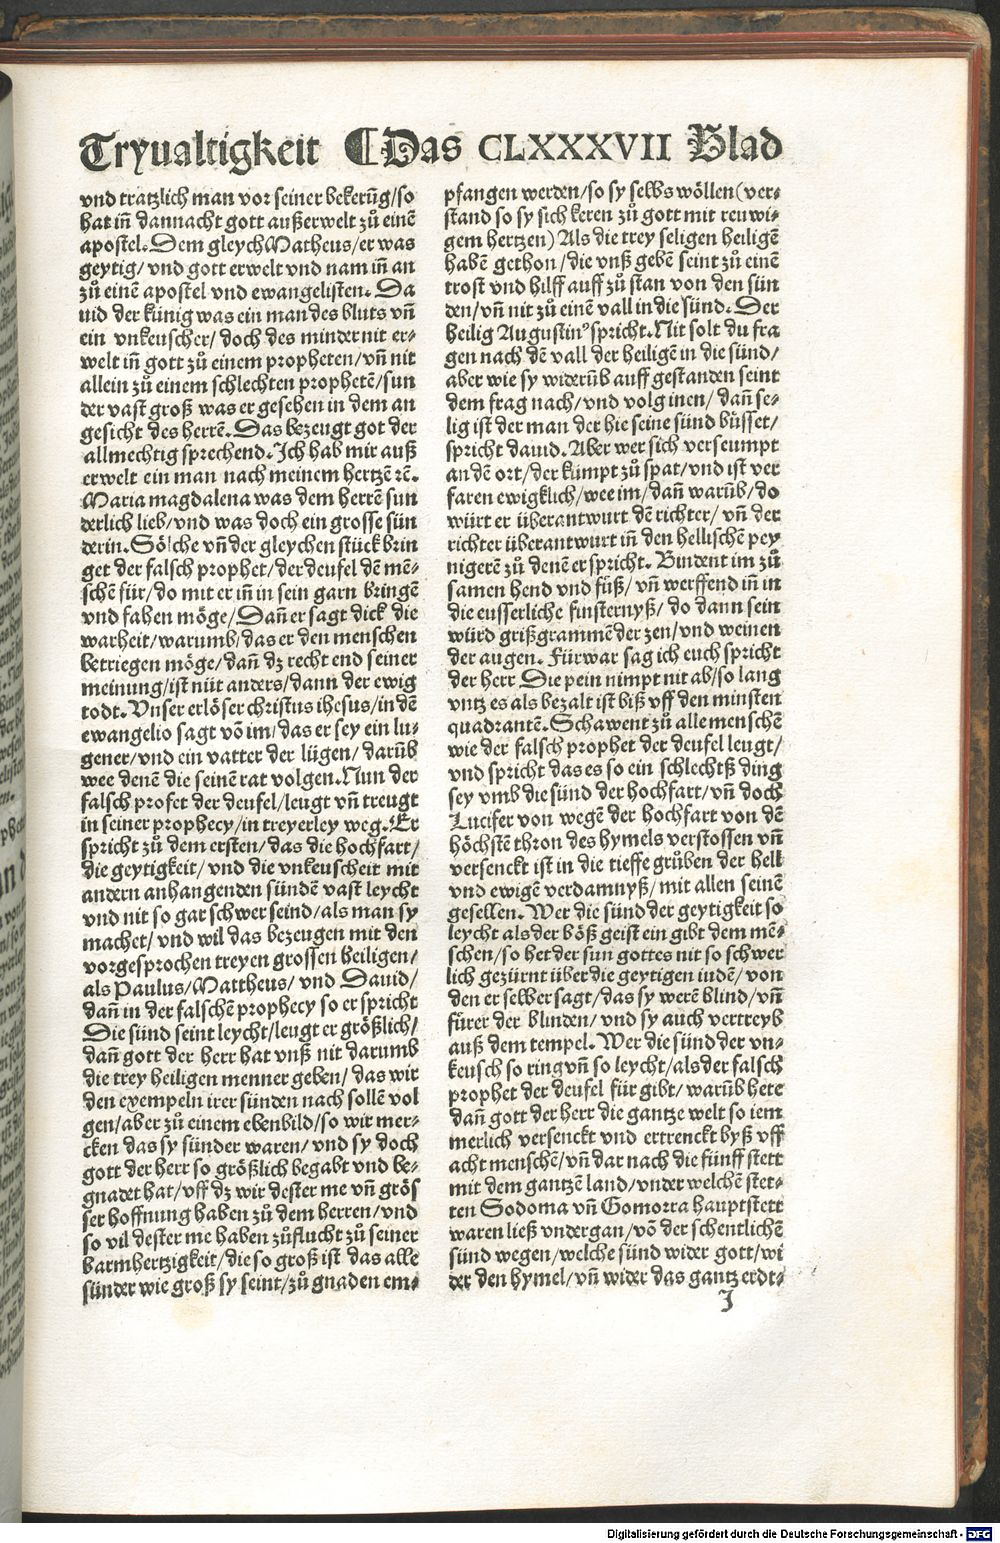 Tryualtigkeit ⸿Das CLXXXVII Blad
vnd tratzlich man vor seiner bekerūg/so
hat in̄ dannacht gott außerwelt zů einē
apostel. Dem gleych Matheus/er was
geytig/ vnd gott erwelt vnd nam in̄ an
zů einē apostel vnd ewangelisten. Da
uid der künig was ein man des bluts vn̄
ein vnkeuscher/ doch des minder nit er-
welt in̄ gott zů einem propheten/vn̄ nit
allein zů einem schlechten prophetē/sun
der vast groß was er gesehen in dem an
gesicht des herrē. Das bezeugt got der
allmechtig sprechend. Ich hab mir auß
erwelt ein man nach meinem hertzē rc̄.
Maria magdalena was dem herrē sun
derlich lieb/vnd was doch ein grosse sün
derin. Sölche vn̄ der gleychen stück brin
get der falsch prophet/der deufel dē mē-
schē für/do mit er in̄ in sein garn bringē
vnd fahen möge/ Dan̄ er sagt dick die
warheit/warumb/das er den menschen
betriegen möge/dan̄ dz recht end seiner
meinung/ist nüt anders/dann der ewig
todt. Vnser erlöser christus ihesus/in dē
ewangelio sagt vō im/das er sey ein lu-
gener/vnd ein vatter der lügen/ darūb
wee denē die seinē rat volgen. Nun der
falsch profet der deufel/leugt vn̄ treugt
in seiner prophecy/in treyerley weg. Er
spricht zů dem ersten/das die hochfart/
die geytigkeit/ vnd die vnkeuscheit mit
andern anhangenden sündē vast leycht
vnd nit so gar schwer seind/als man sy
machet/ vnd wil das bezeugen mit den
vorgesprochen treyen grossen heiligen/
als Paulus/Mattheus/ vnd Dauid/
dan̄ in der falschē prophecy so er spricht
Die sünd seint leycht/leugt er größlich/
dan̄ gott der herr hat vnß nit darumb
die trey heiligen menner geben/ das wir
den exempeln irer sünden nach sollē vol
gen/aber zů einem ebenbild/so wir mer-
cken das sy sünder waren/ vnd sy doch
gott der herr so größlich begabt vnd be-
gnadet hat/vff dz wir dester me vn̄ grös
ser hoffnung haben zů dem herren/vnd
so vil dester me haben zůflucht zů seiner
barmhertzigkeit/die so groß ist das alle
sünder wie groß sy seint/zů gnaden em-
pfangen werden/so sy selbs wöllen (ver-
stand so sy sich keren zů gott mit reuwi-
gem hertzen) Als die trey seligen heiligē
habē gethon/die vnß gebē seint zů einē
trost vnd hilff auff zů stan von den sün
den/vn̄ nit zů einē vall in die sünd. Der
heilig Augustinꝰ spricht. Nit solt du fra
gen nach dē vall der heiligē in die sünd/
aber wie sy widerūb auff gestanden seint
dem frag nach/vnd volg inen/ dan̄ se-
lig ist der man der hie seine sünd büsset/
spricht dauid. Aber wer sich verseumpt
an dē ort/der kumpt zů spat/vnd ist ver
faren ewigklich/wee im/dan̄ warūb/do
würt er überantwurt dē richter/ vn̄ der
richter überantwurt in̄ den hellischē pey
nigerē zů denē er spricht. Bindent im zů
samen hend vnd füß/ vn̄ werffend in̄ in
die eusserliche finsternyß/ do dann sein
würd grißgrammē der zen/vnd weinen
der augen. Fürwar sag ich euch spricht
der herr Die pein nimpt nit ab/so lang
vntz es als bezalt ist biß vff den minsten
quadrantē. Schawent zů alle menschē
wie der falsch prophet der deufel leugt/
vnd spricht das es so ein schlechtß ding
sey vmb die sünd der hochfart/vn̄ doch
Lucifer von wegē der hochfart von dē
höchstē thron des hymels verstossen vn̄
versenckt ist in die tieffe grüben der hell
vnd ewigē verdamnyß/ mit allen seinē
gesellen. Wer die sünd der geytigkeit so
leycht als der böß geist ein gibt dem mē-
schen/so het der sun gottes nit so schwer
lich gezürnt über die geytigen iudē/ von
den er selber sagt/das sy werē blind/vn̄
fürer der blinden/ vnd sy auch vertreyb
auß dem tempel. Wer die sünd der vn-
keusch so ring vn̄ so leycht/als der falsch
prophet der deufel für gibt/ warūb hete
dan̄ gott der herr die gantze welt so iem
merlich versenckt vnd ertrenckt byß vff
acht menschē/vn̄ dar nach die fünff stett
mit dem gantzē land/vnder welchē stet-
ten Sodoma vn̄ Gomorra hauptstett
waren ließ vndergan/vō der schentlichē
sünd wegen/welche sünd wider gott/wi
der den hymel/vn̄ wider das gantz erdt-
J
Digitalisierung gefördert durch die Deutsche Forschungsgemeinschaft - DFG